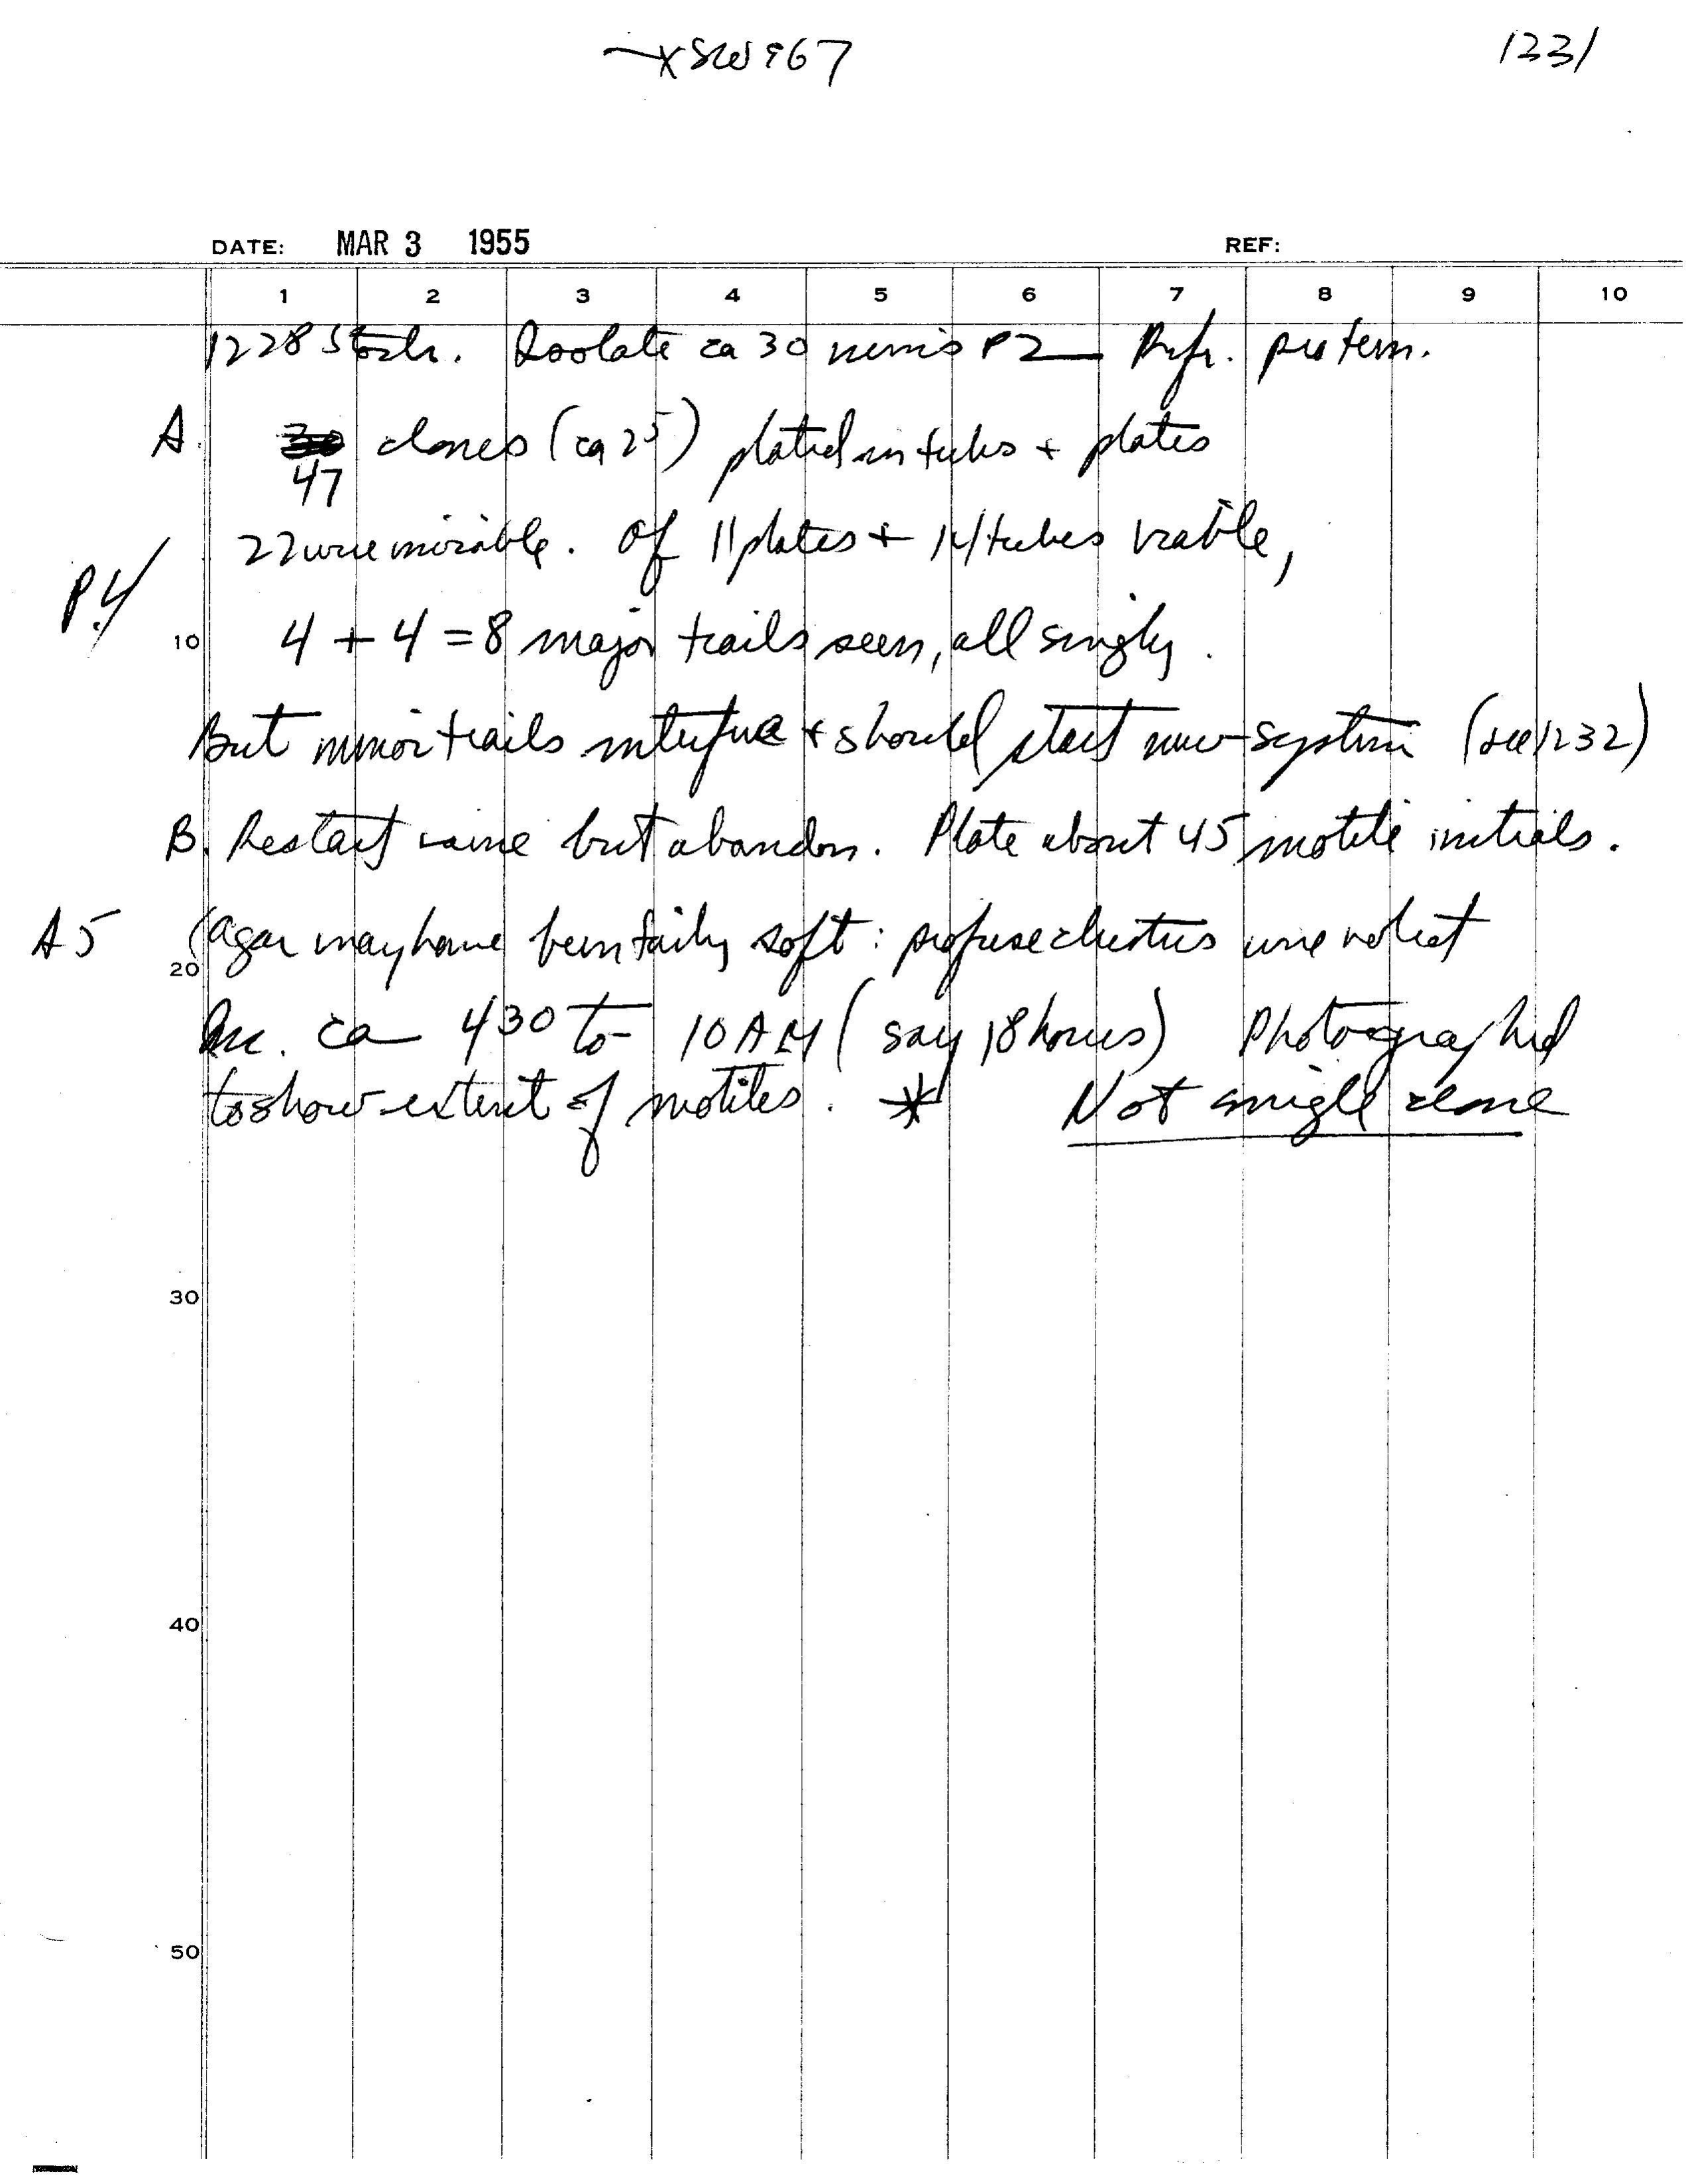 —x SW967 1231
DATE: MAR 3 1955 REF:
1 2 3 4 5 6 7 8 9 10
1228 Isolate ca 30 P2 — Refr. pro tem.
A. 47 clones (ca 25) plated in tubes + plates
22 were inviable. Of 11 plates + 14 tubes viable,
P.4
10 4 + 4 = 8 major trails seen, all singly.
But minor trails interfere + should start new system (see 1232)
B. Restart same but abandon. Plate about 45 motile initials.
A5 (agar may have been fairly soft: profuse clusters were
20
Inc. ca 430 to 10 AM (say 18 hours) Photographed
to show extent of motiles. * Not single clone
30
40
50